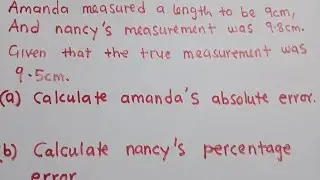 Amanda measured a length to be 9cm,
And nancy's measurement was 9.8cm.
Given that the true measurement was
9.5cm.
(a) Calculate amanda's absolute error.
(b) Calculate nancy's percentage
error